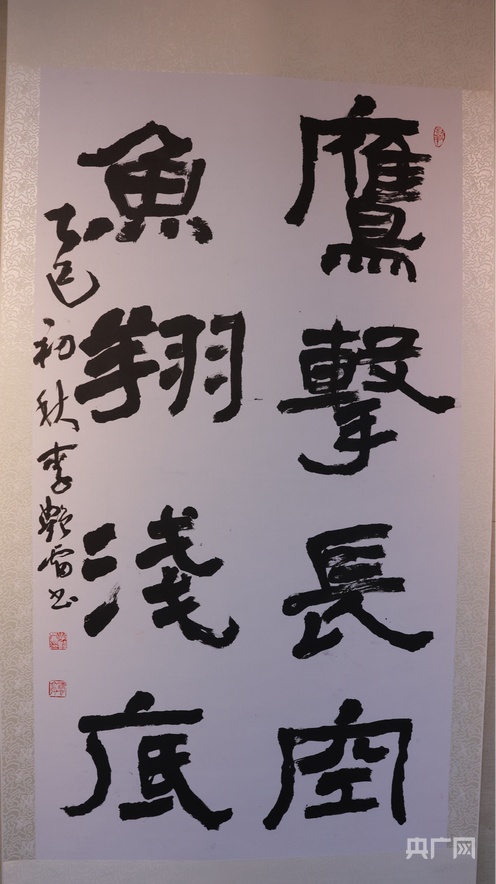 鷹擊長空
魚翔淺底
乙巳初秋李艷雷书
央广网